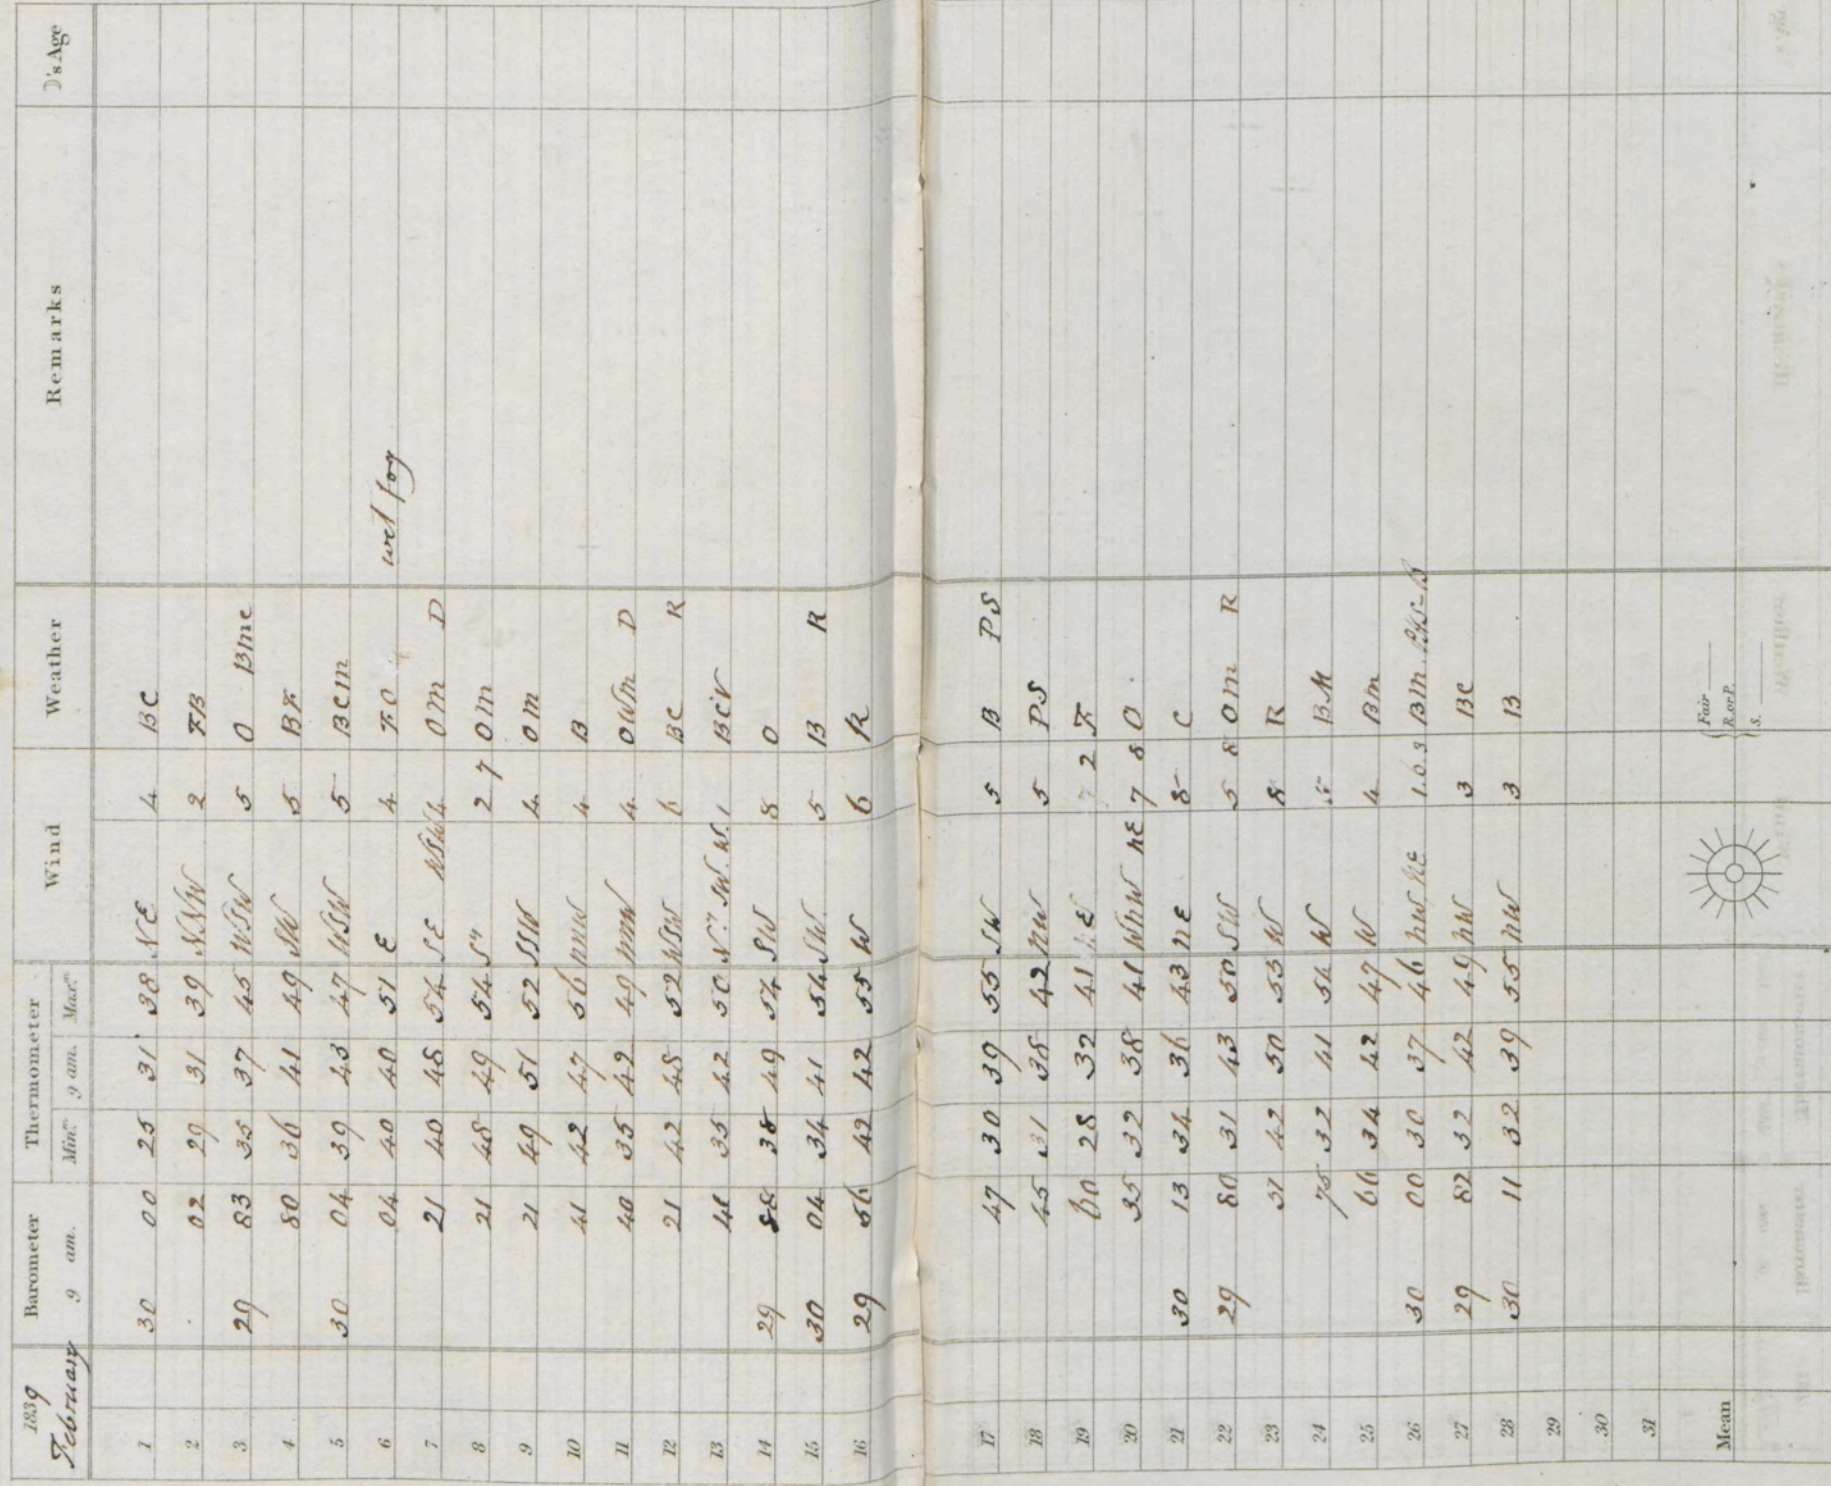 1839 February Barometer Thermometer Wind Weather Remarks ☽'s Age
9 am. Min.m 9 am. Max.m
1 30 00 25 31 38 NE 4 BC
2 02 29 31 39 NNW 2 FB
3 29 83 35 37 45 WSW 5 O Bmc
4 80 36 41 49 SW 5 BF
5 30 04 39 43 47 WSW 5 BCm
6 04 40 40 51 E 4 FO wet fog
7 21 40 48 54 SE WSW 4 Om D
8 21 48 49 54 S" 2 7 Om
9 21 49 51 52 SSW 4 Om
10 41 42 47 56 NNW 4 B
11 40 35 42 49 NNW 4 OWm D
12 21 42 48 52 WSW 6 BC R
13 35 42 50 N." SW. W. 1 BCiV
14 29 88 38 49 54 SW 8 O
15 30 04 34 41 54 SW 5 B R
16 29 56 42 42 55 W 6 R
17 47 30 39 55 SW 5 B PS
18 45 31 38 42 NW 5 PS
19 60 28 32 41 E 2 F
20 35 32 38 41 WNW NE 7 8 O
21 30 13 34 36 43 NE 8 C
22 29 80 31 43 50 SW 5 8 Om R
23 51 42 50 53 W 8 R
24 75 32 41 54 W BM
25 66 34 42 47 W 4 Bm
26 30 00 30 37 46 NW NE 1.6 3 Bm
27 29 82 32 42 49 NW 3 BC
28 30 11 32 39 55 NW 3 B
29
30
31
Mean
Fair
R. or P.
S.